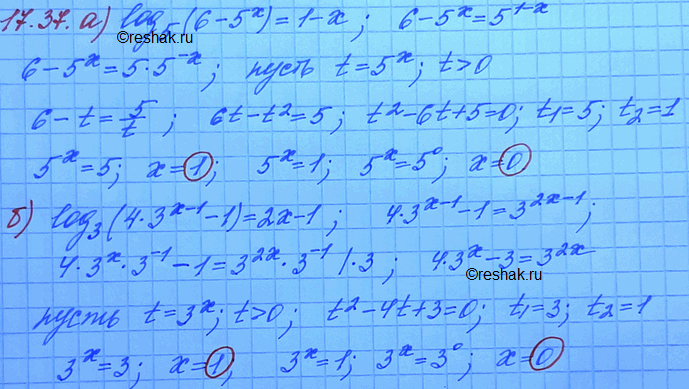 17.37. а) log₅(6-5ˣ)=1-x; 6-5ˣ=5¹⁻ˣ
©reshak.ru
6-5ˣ=5·5⁻ˣ; пусть t=5ˣ; t>0
6-t=5/t; 6t-t²=5; t²-6t+5=0; t₁=5; t₂=1
5ˣ=5; x=1; 5ˣ=1; 5ˣ=5⁰; x=0
б) log₃(4·3ˣ⁻¹-1)=2x-1; 4·3ˣ⁻¹-1=3²ˣ⁻¹;
4·3ˣ·3⁻¹-1=3²ˣ·3⁻¹ |·3; 4·3ˣ-3=3²ˣ
©reshak.ru
пусть t=3ˣ; t>0; t²-4t+3=0; t₁=3; t₂=1
3ˣ=3; x=1; 3ˣ=1; 3ˣ=3⁰; x=0